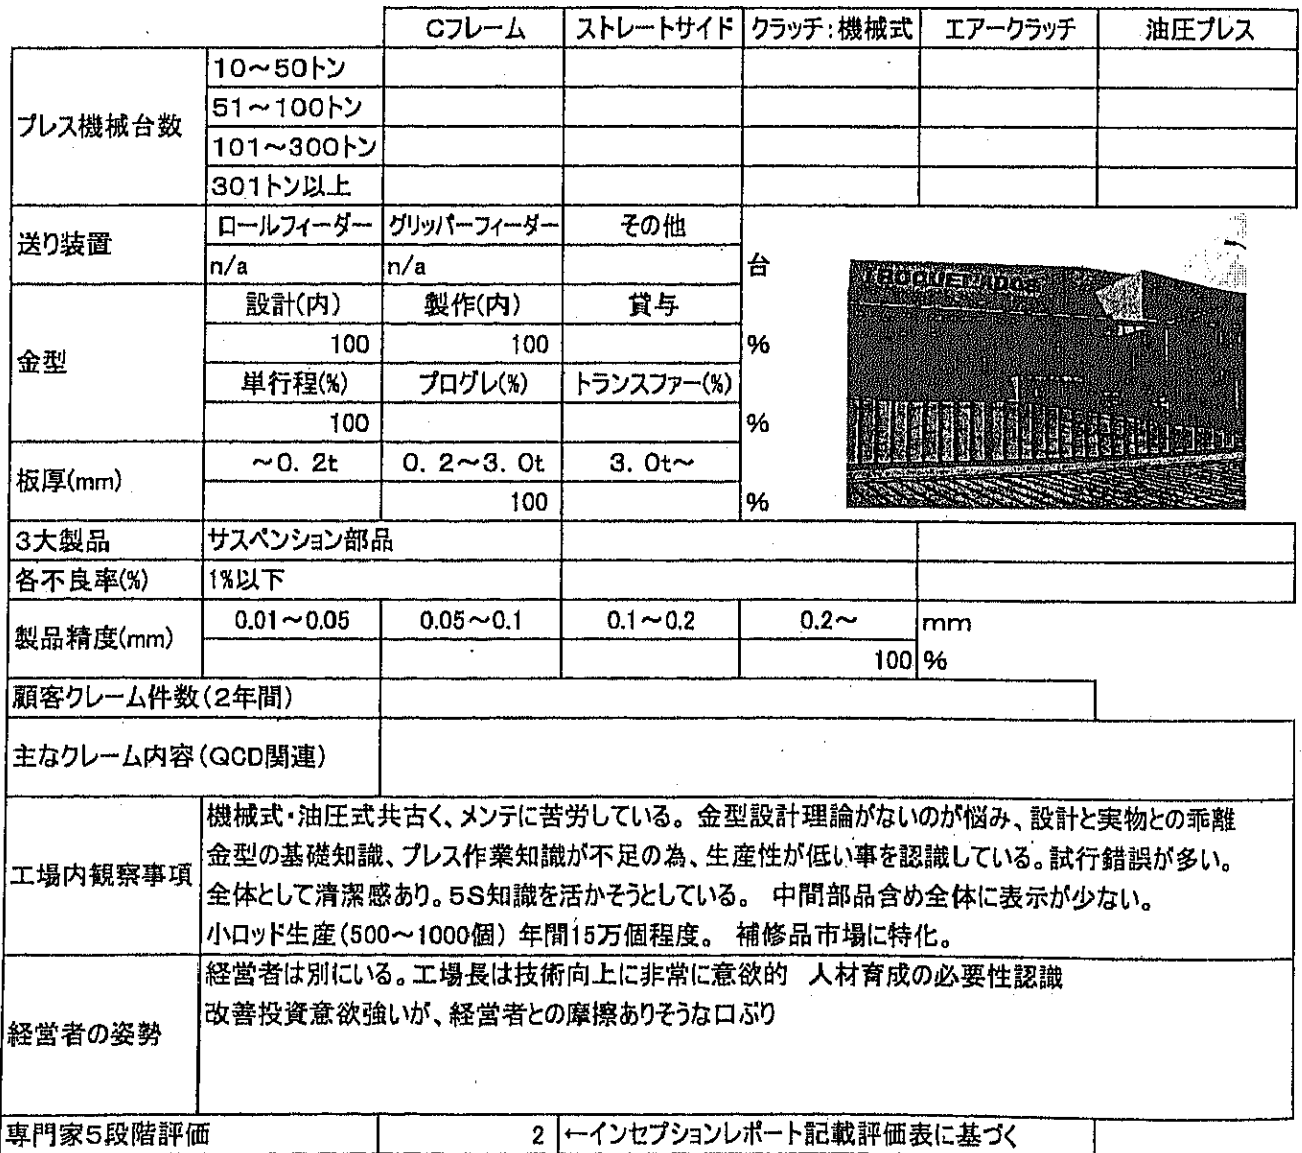 Cフレーム ストレートサイド クラッチ:機械式 エアークラッチ 油圧プレス
プレス機械台数
10～50トン
51～100トン
101～300トン
301トン以上
送り装置 ロールフィーダー グリッパーフィーダー その他
n/a n/a 台
金型 設計(内) 製作(内) 貸与
100 100 %
単行程(%) プログレ(%) トランスファー(%)
100 %
板厚(mm) ～0.2t 0.2～3.0t 3.0t～
100 %
TROQUELADOS
3大製品 サスペンション部品
各不良率(%) 1%以下
製品精度(mm) 0.01～0.05 0.05～0.1 0.1～0.2 0.2～ mm
100 %
顧客クレーム件数(2年間)
主なクレーム内容(QCD関連)
工場内観察事項
機械式・油圧式共古く、メンテに苦労している。金型設計理論がないのが悩み、設計と実物との乖離
金型の基礎知識、プレス作業知識が不足の為、生産性が低い事を認識している。試行錯誤が多い。
全体として清潔感あり。5S知識を活かそうとしている。 中間部品含め全体に表示が少ない。
小ロッド生産(500～1000個) 年間15万個程度。 補修品市場に特化。
経営者の姿勢
経営者は別にいる。工場長は技術向上に非常に意欲的 人材育成の必要性認識
改善投資意欲強いが、経営者との摩擦ありそうな口ぶり
専門家5段階評価 2 ←インセプションレポート記載評価表に基づく